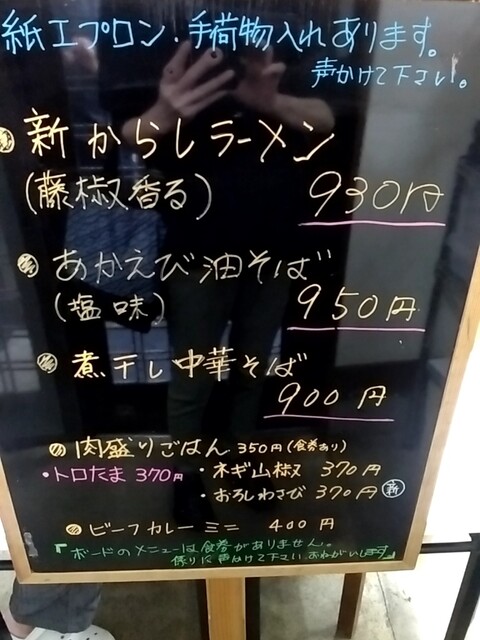 紙エプロン・手荷物入れあります。
声かけて下さい。
新からしラーメン
(藤椒香る) 930円
あかえび油そば
(塩味) 950円
煮干し中華そば
900円
肉盛りごはん 350円(食券あり)
・トロたま 370円 ・ネギ山椒 370円
・おろしわさび 370円 新
ビーフカレーミニ 400円
『ボードのメニューは食券がありません。
係りに声かけて下さい。おねがいします』